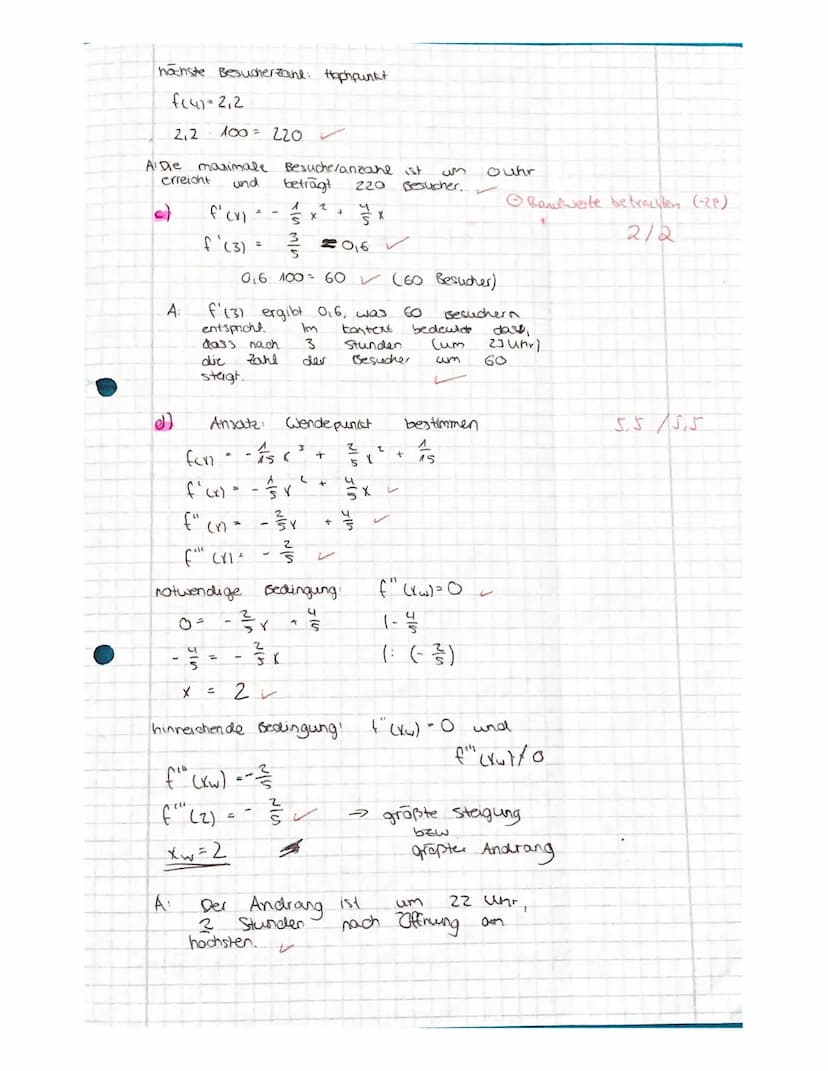 höchste Besucherzahl: Hochpunkt
f(4) = 2,2
2,2 · 100 = 220 ✓
A: Die maximale Besucheranzahl ist um 0 uhr
erreicht und beträgt 220 Besucher. ✓
⊖ Randwerte betrachten (-2P)
c) f'(x) = - 1/5 x² + 4/5 x
2/2
f'(3) = 3/5 = 0,6 ✓
0,6 · 100 = 60 ✓ (60 Besucher)
A: f'(3) ergibt 0,6, was 60 Besuchern
entspricht. Im Kontext bedeutet dass,
dass nach 3 Stunden (um 23 Uhr)
die Zahl der Besucher um 60
steigt. ✓
d) Ansatz: Wendepunkt bestimmen
5,5 / 5,5
f(x) = - 1/15 x³ + 2/5 x² + 1/15
f'(x) = - 1/5 x² + 4/5 x ✓
f''(x) = - 2/5 x + 4/5 ✓
f'''(x) = - 2/5 ✓
notwendige Bedingung: f''(xw) = 0 ✓
0 = - 2/5 x + 4/5 |- 4/5
- 4/5 = - 2/5 x |: (- 2/5)
x = 2 ✓
hinreichende Bedingung: f''(xw) = 0 und
f'''(xw) ≠ 0
f'''(xw) = - 2/5
f'''(2) = - 2/5 ✓ → größte Steigung
bzw
xw = 2 größter Andrang
A: Der Andrang ist um 22 Uhr,
2 Stunden nach Öffnung am
höchsten. ✓